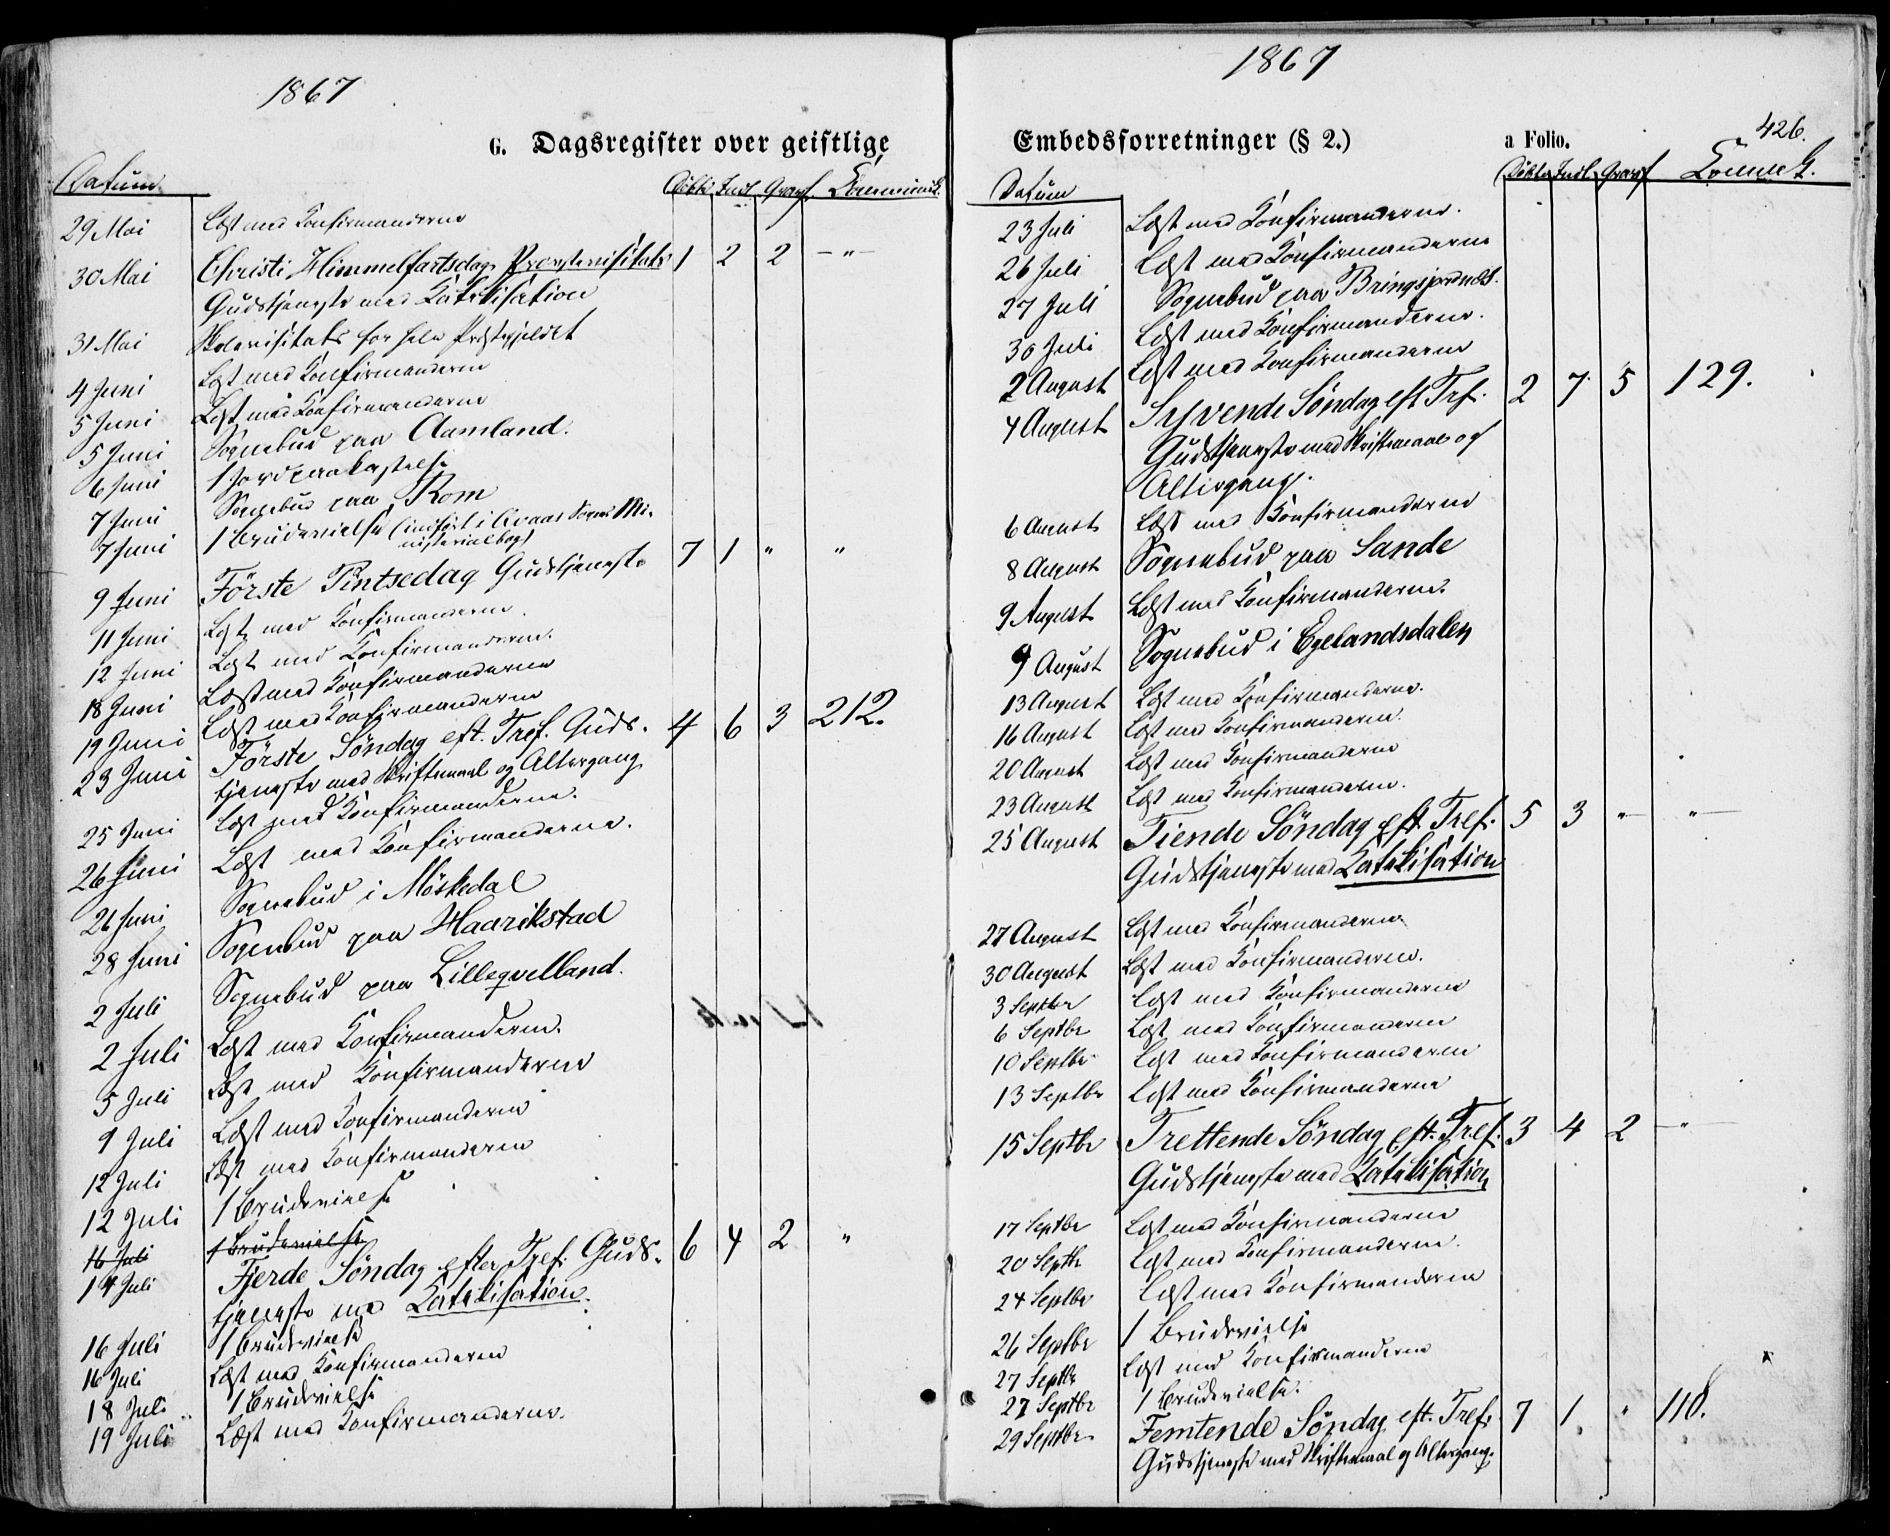 1867
G. Dagsregister over geistlige
Datum Döbte Indl. Gravf. Communik.
29 Mai Læst med Konfirmanderne
30 Mai Christi Himmelfartsdag. Provstevisitats 1 2 2 - " -
Gudstjeneste med Katekisation
31 Mai Skolevisitats for hele Præstegjeldet
4 Juni Læst med Konfirmanderne
5 Juni Læst med Konfirmanderne
5 Juni Sognebud paa Aamland.
6 Juni 1 Jordpaakastelse
7 Juni Sognebud paa Rom
7 Juni 1 Brudevielse (indført i Aaaas Sogns Mi-
nisterialbog)
9 Juni Förste Pintsedag Gudstjeneste 7 1 " "
11 Juni Læst med Konfirmanderne.
12 Juni Læst med Konfirmanderne.
18 Juni Læst med Konfirmanderne
19 Juni Læst med Konfirmanderne
23 Juni Förste Söndag eft. Tref. Guds- 4 6 3 212.
tjeneste med Skriftemaal og Altergang
25 Juni Læst med Konfirmanderne.
26 Juni Læst med Konfirmanderne.
26 Juni Sognebud i Möskedal
28 Juni Sognebud paa Haarikstad
2 Juli Sognebud paa Lilleqvelland.
2 Juli Læst med Konfirmanderne.
5 Juli Læst med Konfirmanderne
9 Juli Læst med Konfirmanderne
12 Juli Læst med Konfirmanderne
12 Juli 1 Brudevielse
16 Juli 1 Brudevielse
14 Juli Fjerde Söndag efter Tref. Guds- 6 4 2 "
tjeneste med Katekisation.
16 Juli 1 Brudevielse
16 Juli Læst med Konfirmanderne
18 Juli 1 Brudevielse
19 Juli Læst med Konfirmanderne.
1867
426.
Embedsforretninger (§ 2.) a Folio.
Datum Döbte Indl. Gravf Commk.
23 Juli Læst med Konfirmanderne.
26 Juli Læst med Konfirmanderne
27 Juli Sognebud paa Bringsjordnæs.
30 Juli Læst med Konfirmanderne.
2 August Læst med Konfirmanderne
4 August Syvende Söndag eft Tref. 2 7 5 129.
Gudstjeneste med Skriftemaal og
Altergang.
6 August Læst med Konfirmanderne
8 August Sognebud paa Sande
9 August Læst med Konfirmanderne.
9 August Sognebud i Egelandsdalen
13 August Læst med Konfirmanderne.
16 August Læst med Konfirmanderne.
20 August Læst med Konfirmanderne
23 August Læst med Konfirmanderne.
25 August Tiende Söndag eft. Tref. 5 3 " "
Gudstjeneste med Katekisation
27 August Læst med Konfirmanderne
30 August Læst med Konfirmanderne.
3 Septbr Læst med Konfirmanderne
6 Septbr Læst med Konfirmanderne
10 Septbr Læst med Konfirmanderne
13 Septbr Læst med Konfirmanderne
15 Septbr Trettende Söndag eft. Tref. 3 4 2 "
Gudstjeneste med Katekisation
17 Septbr Læst med Konfirmanderne
20 Septbr Læst med Konfirmanderne.
24 Septbr Læst med Konfirmanderne
26 Septbr 1 Brudevielse
27 Septbr Læst med Konfirmanderne
27 Septbr 1 Brudevielse.
29 Septbr Femtende Söndag eft. Tref. 7 1. " 110.
Gudstjeneste med Skriftemaal og Altergang.